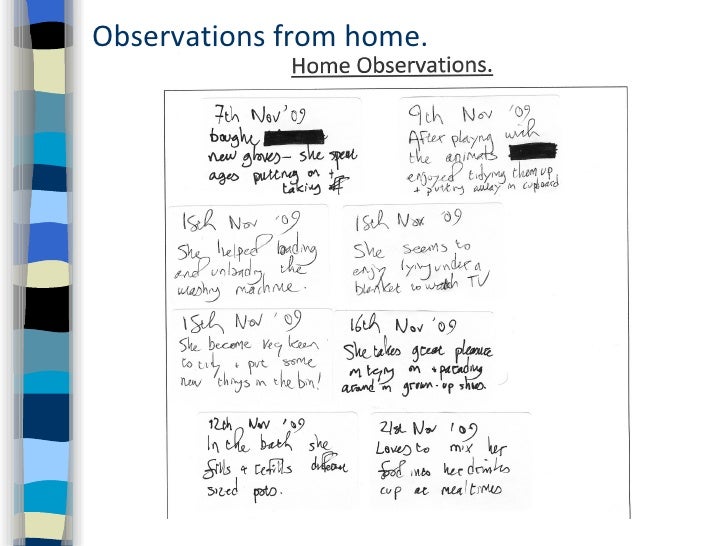 Observations from home.
Home Observations.
7th Nov '09
bought
new gloves - she spent
ages putting on +
taking off
9th Nov '09
After playing with
the animals
enjoyed tidying them up
+ putting away in cupboard
15th Nov '09
She helped loading
and unloading the
washing machine.
15th Nov '09
She seems to
enjoy lying under a
blanket to watch TV
15th Nov '09
She became very keen
to tidy + put some
new things in the bin!
16th Nov '09
She takes great pleasure
in trying on + parading
around in grown-up shoes.
12th Nov '09
In the bath she
fills & refills different
sized pots.
21st Nov '09
Loves to mix her
food into her drinks
cup at mealtimes